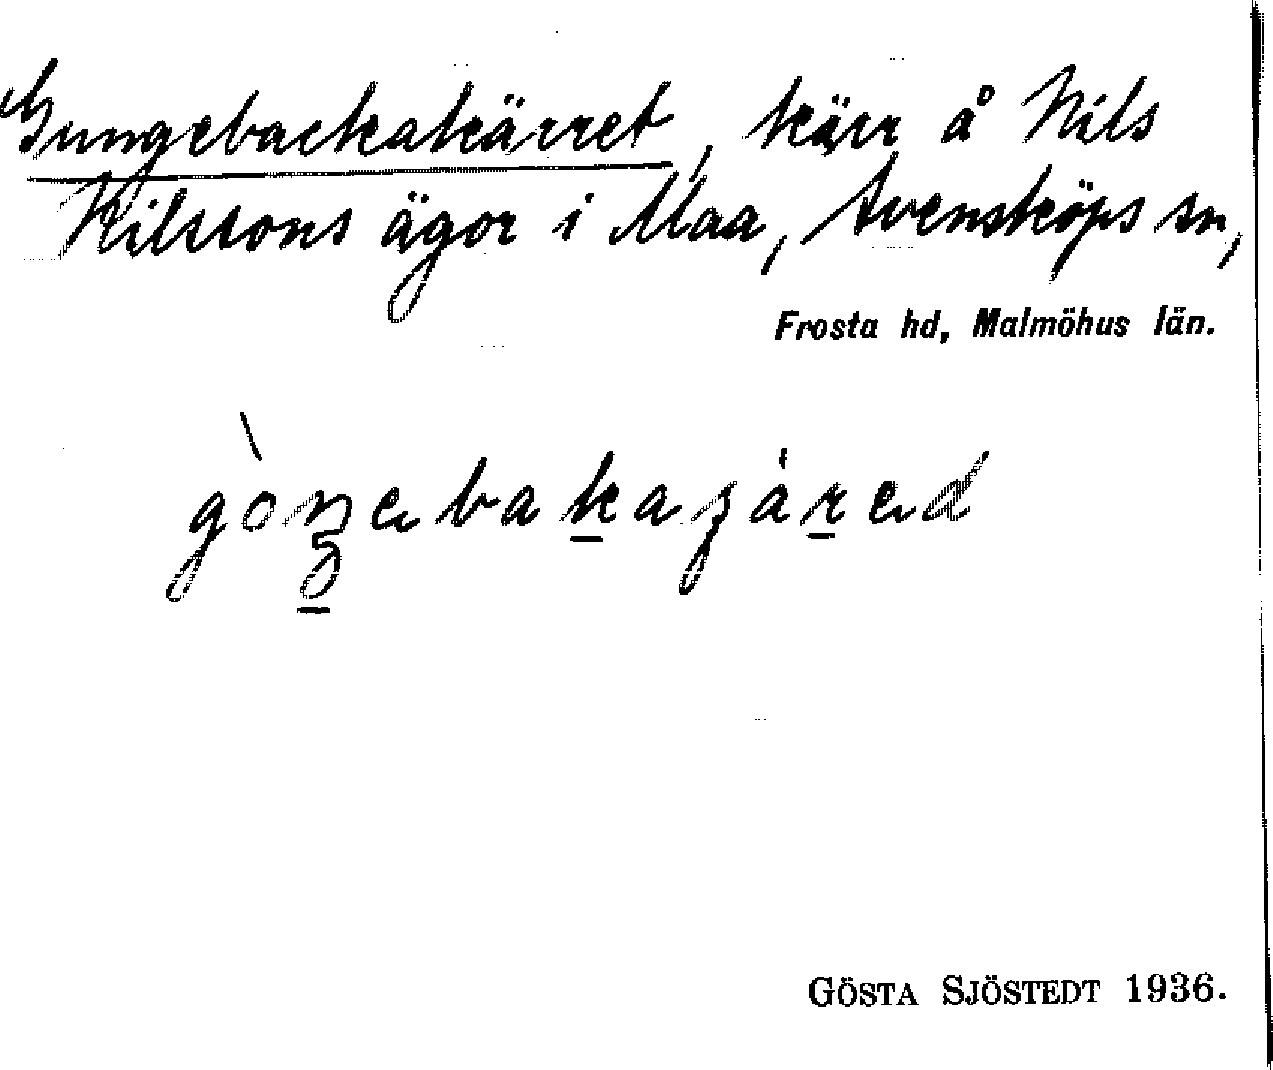 Gungebackakärret, kärr å Nils
Nilssons ägor i Maa, Svensköps sn,
Frosta hd, Malmöhus län.
GÖSTA SJÖSTEDT 1936.